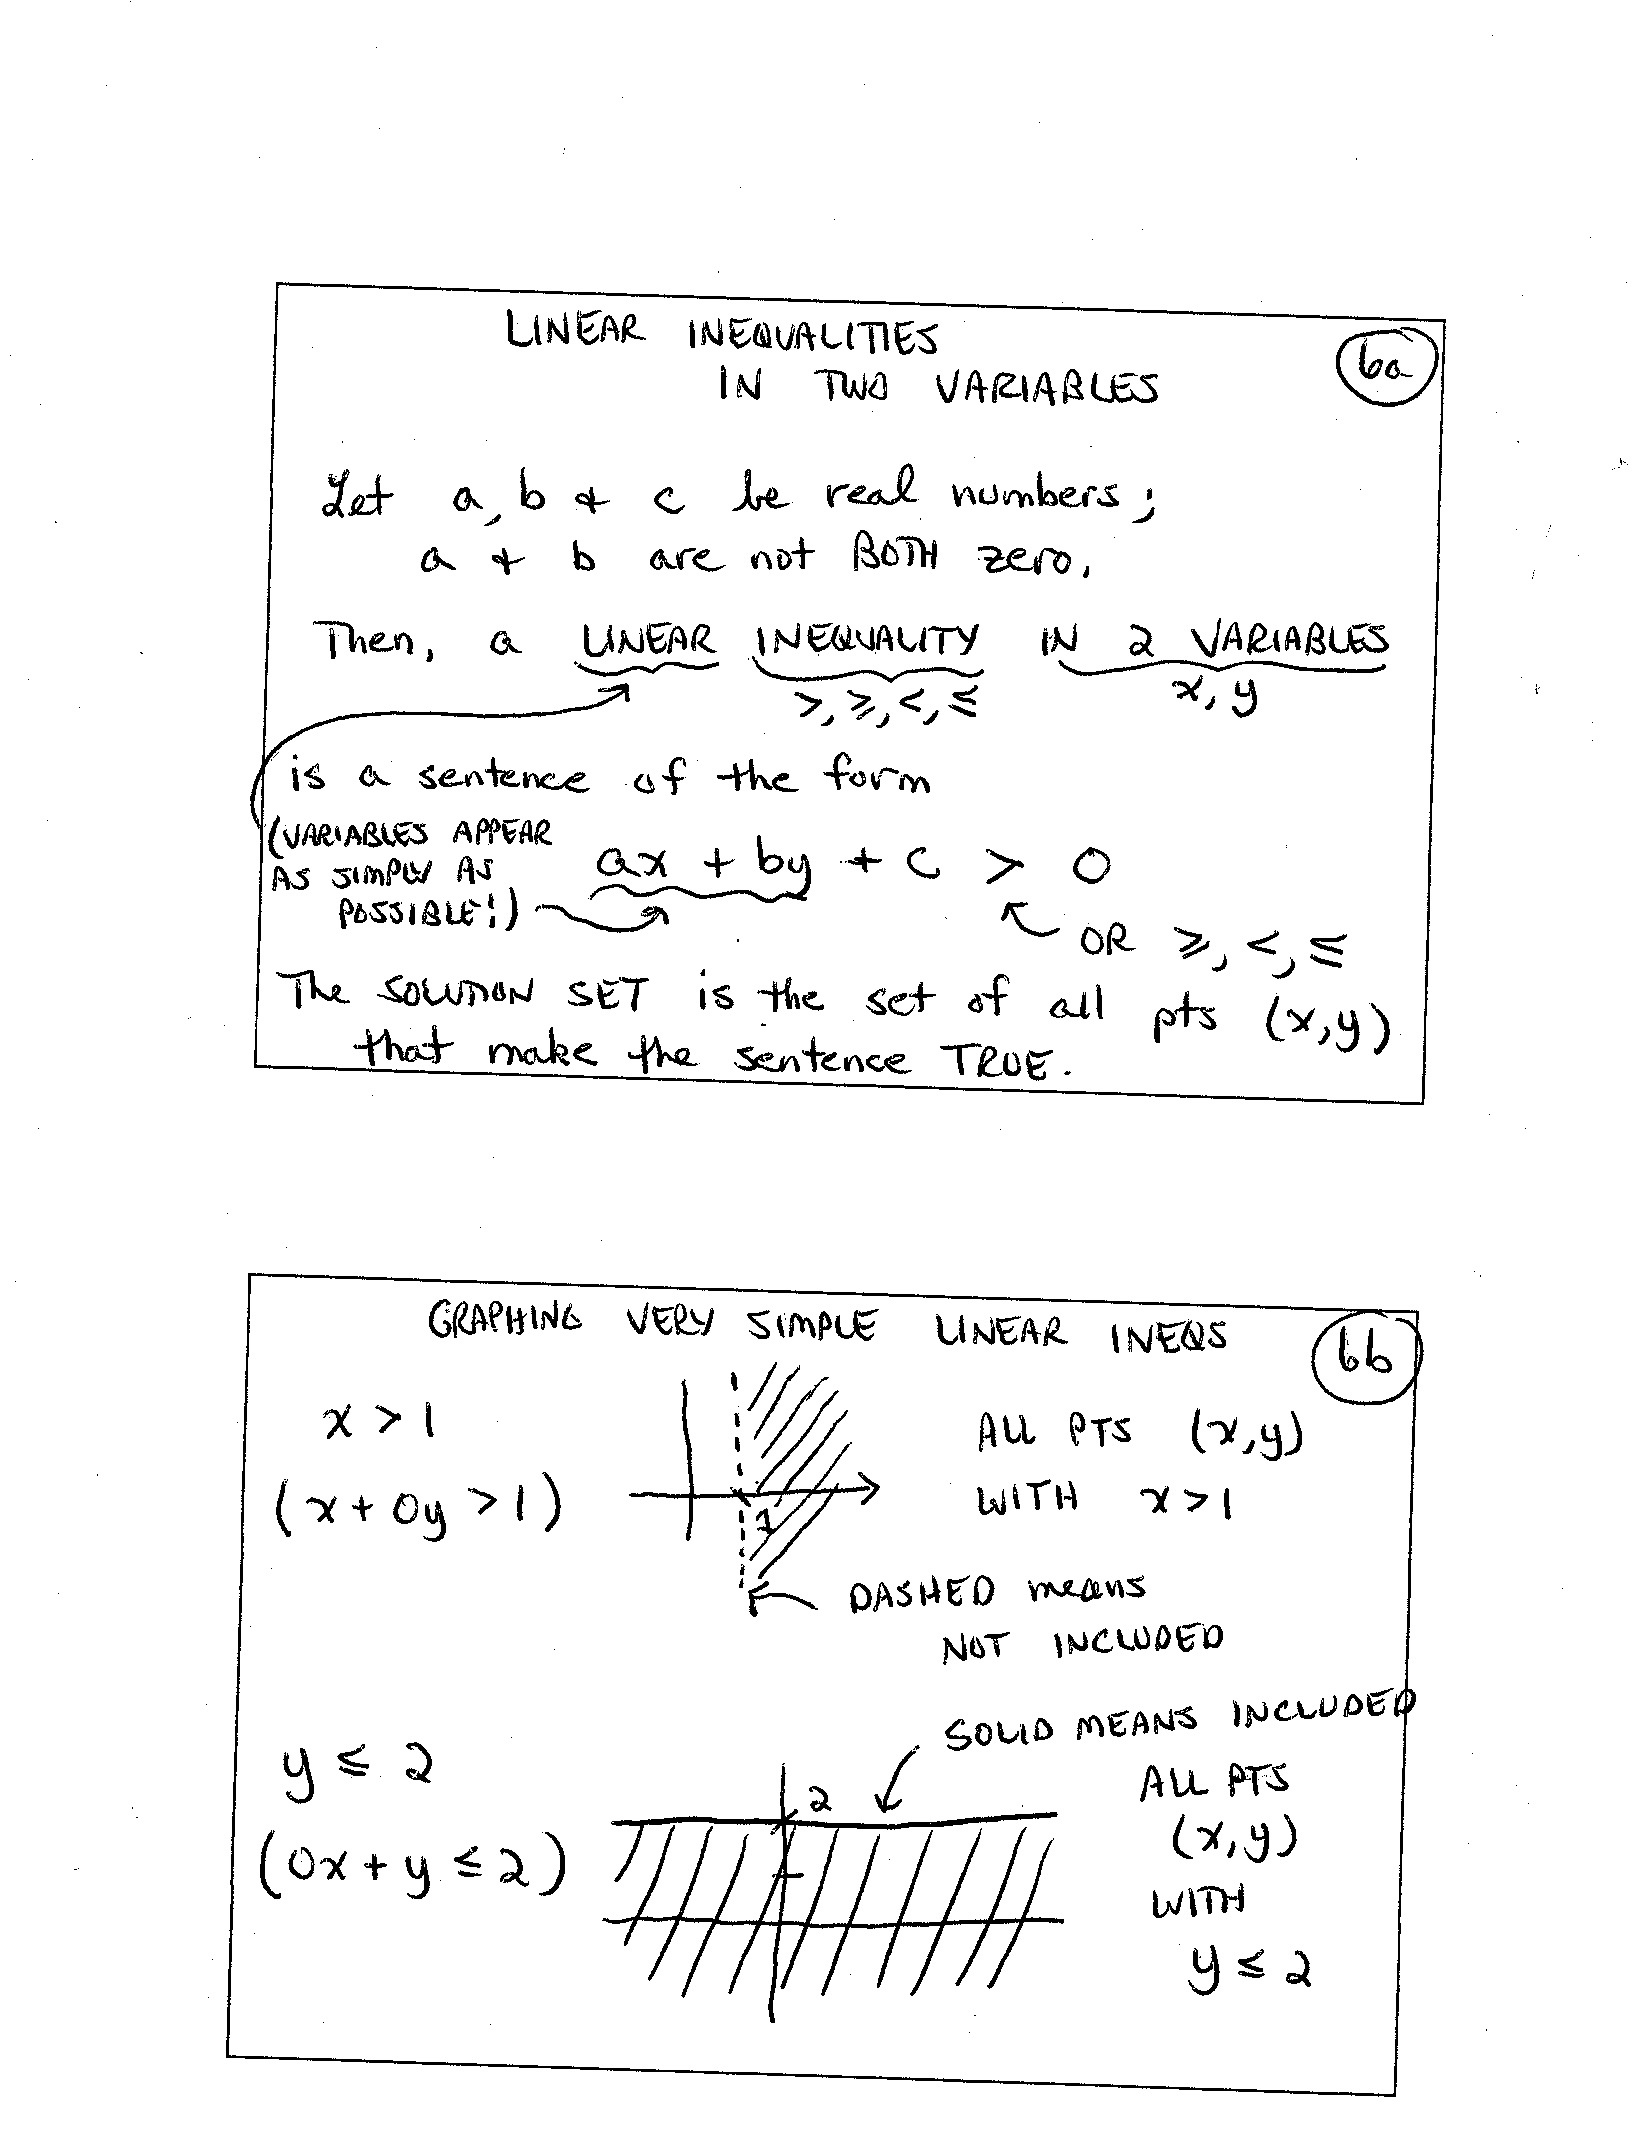 LINEAR INEQUALITIES
IN TWO VARIABLES
6a
Let a, b & c be real numbers;
a & b are not BOTH zero.
Then, a LINEAR INEQUALITY IN 2 VARIABLES
>, ≥, <, ≤
x, y
is a sentence of the form
(VARIABLES APPEAR
AS SIMPLY AS
POSSIBLE!)
ax + by + c > 0
OR ≥, <, ≤
The SOLUTION SET is the set of all pts (x,y)
that make the sentence TRUE.
GRAPHING VERY SIMPLE LINEAR INEQS
6b
x > 1
(x + 0y > 1)
1
ALL PTS (x,y)
WITH x > 1
DASHED means
NOT INCLUDED
SOLID MEANS INCLUDED
y ≤ 2
(0x + y ≤ 2)
2
ALL PTS
(x,y)
WITH
y ≤ 2